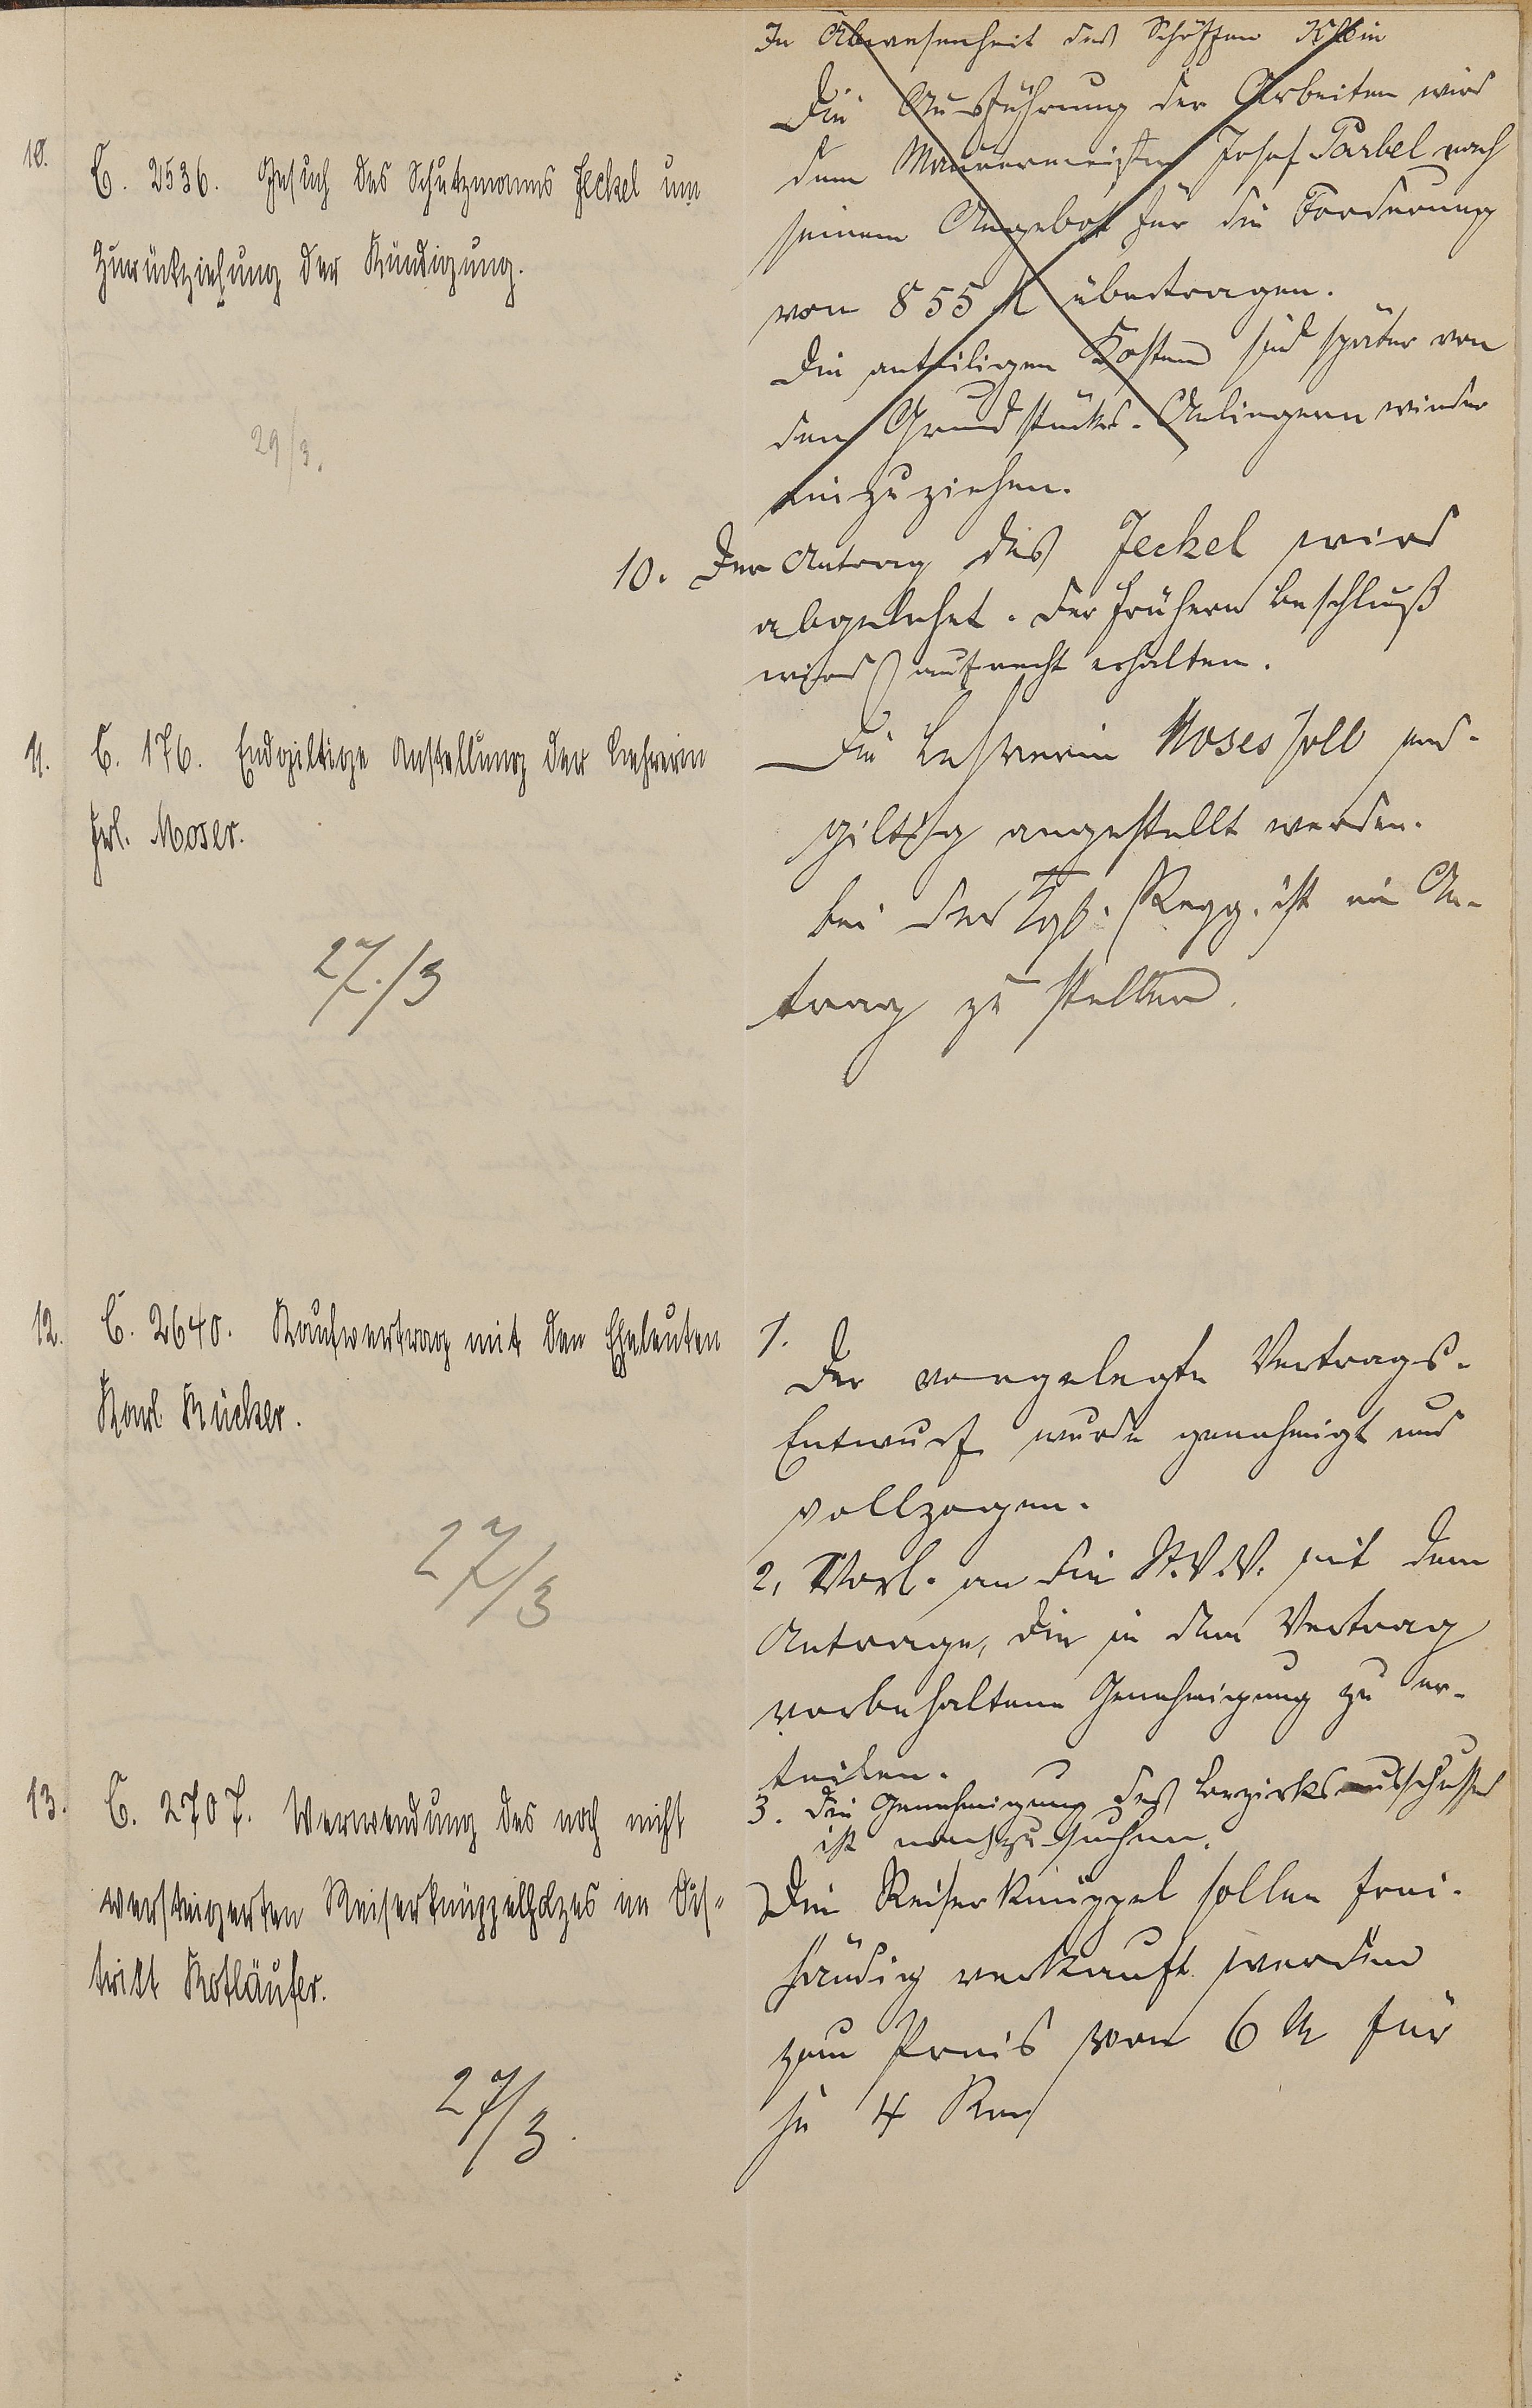 In Abwesenheit des Schöffen Klein
Die Ausführung der Arbeiten wird
dem Maurermeister Josef Parbel nach
seinem Angebot für die Forderung
von 855 M übertragen.
Die anteiligen Kosten sind später von
den Grundstücks-Anliegern wieder
einzuziehen.
10.
C. 2536. Gesuch des Schutzmanns Jeckel um
Zurückziehung der Kündigung.
29/3.
10. Der Antrag des Jeckel wird
abgelehnt. Der frühere Beschluß
wird aufrecht erhalten.
11.
C. 176. Endgiltige Anstellung der Lehrerin
Frl. Moser.
27./3
Die Lehrerin Moses soll end-
giltig angestellt werden.
bei der Kgl. Regg. ist ein An-
trag zu stellen.
12.
C. 2640. Kaufvertrag mit den Eheleuten
Karl Rücker.
27/3
1.
Der vorgelegte Vertrags-
Entwurf wurde genehmigt und
vollzogen.
2. Vorl. an die St.V.V. mit dem
Antrage, die in dem Vertrag
vorbehaltene Genehmigung zu er-
teilen.
3. Die Genehmigung des Bezirksausschusses
ist nachzusuchen.
13.
C. 2707. Verwendung des noch nicht
versteigerten Reiserknüppelholzes im Dis-
trikt Rotläufer.
27/3.
Die Reiserknüppel sollen frei-
händig verkauft werden
zum Preis von 6 M für
je 4 Rm